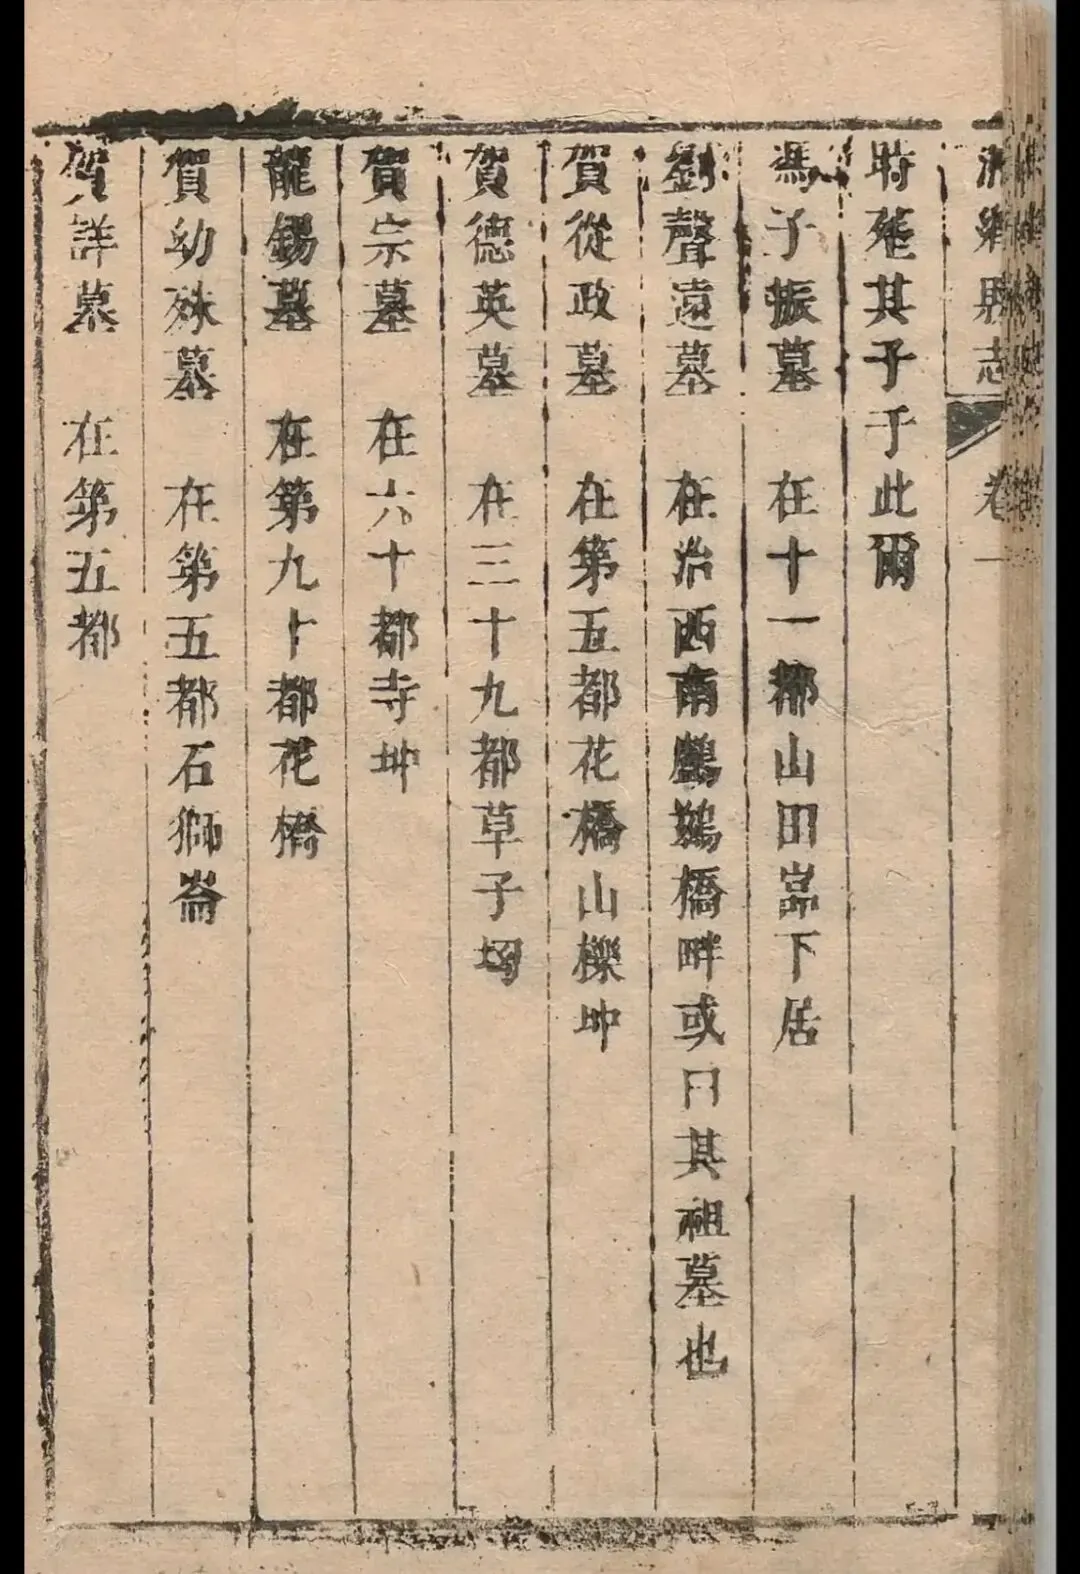 湘鄉縣志 卷一
時塟其子于此爾
馮子振墓 在十一都山田嵓下居
劉聲遠墓 在治西南鸕鷀橋畔或曰其祖墓也
賀從政墓 在第五都花橋山櫟坤
賀德英墓 在三十九都草子坳
賀宗墓 在六十都寺坤
龍錫墓 在第九十都花橋
賀幼殊墓 在第五都石獅崙
賀詳墓 在第五都